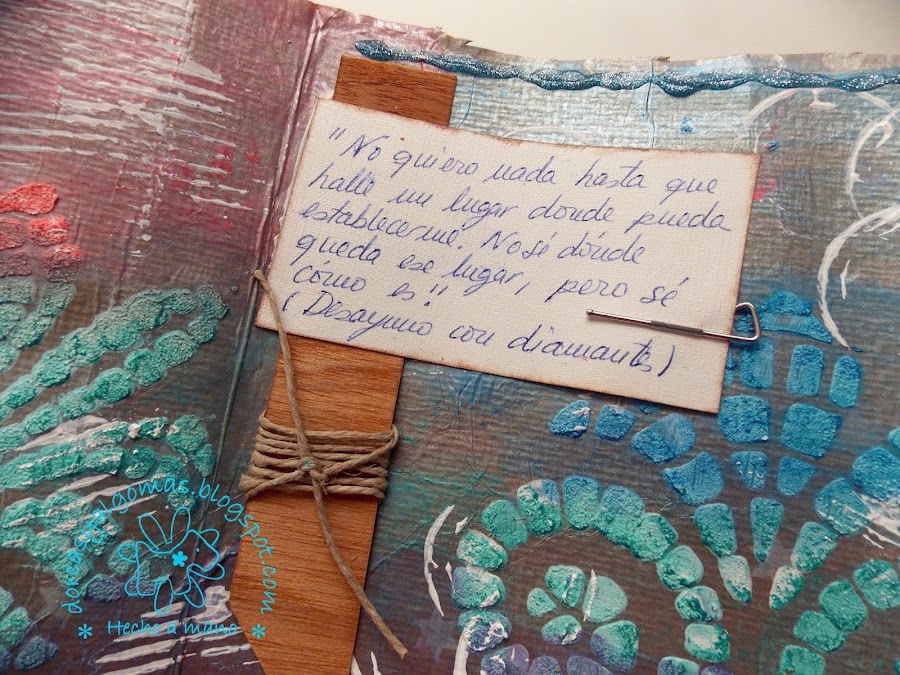 "No quiero nada hasta que
halle un lugar donde pueda
establecerme. No sé dónde
queda ese lugar, pero sé
cómo es".
(Desayuno con diamantes)
Hecho a mano